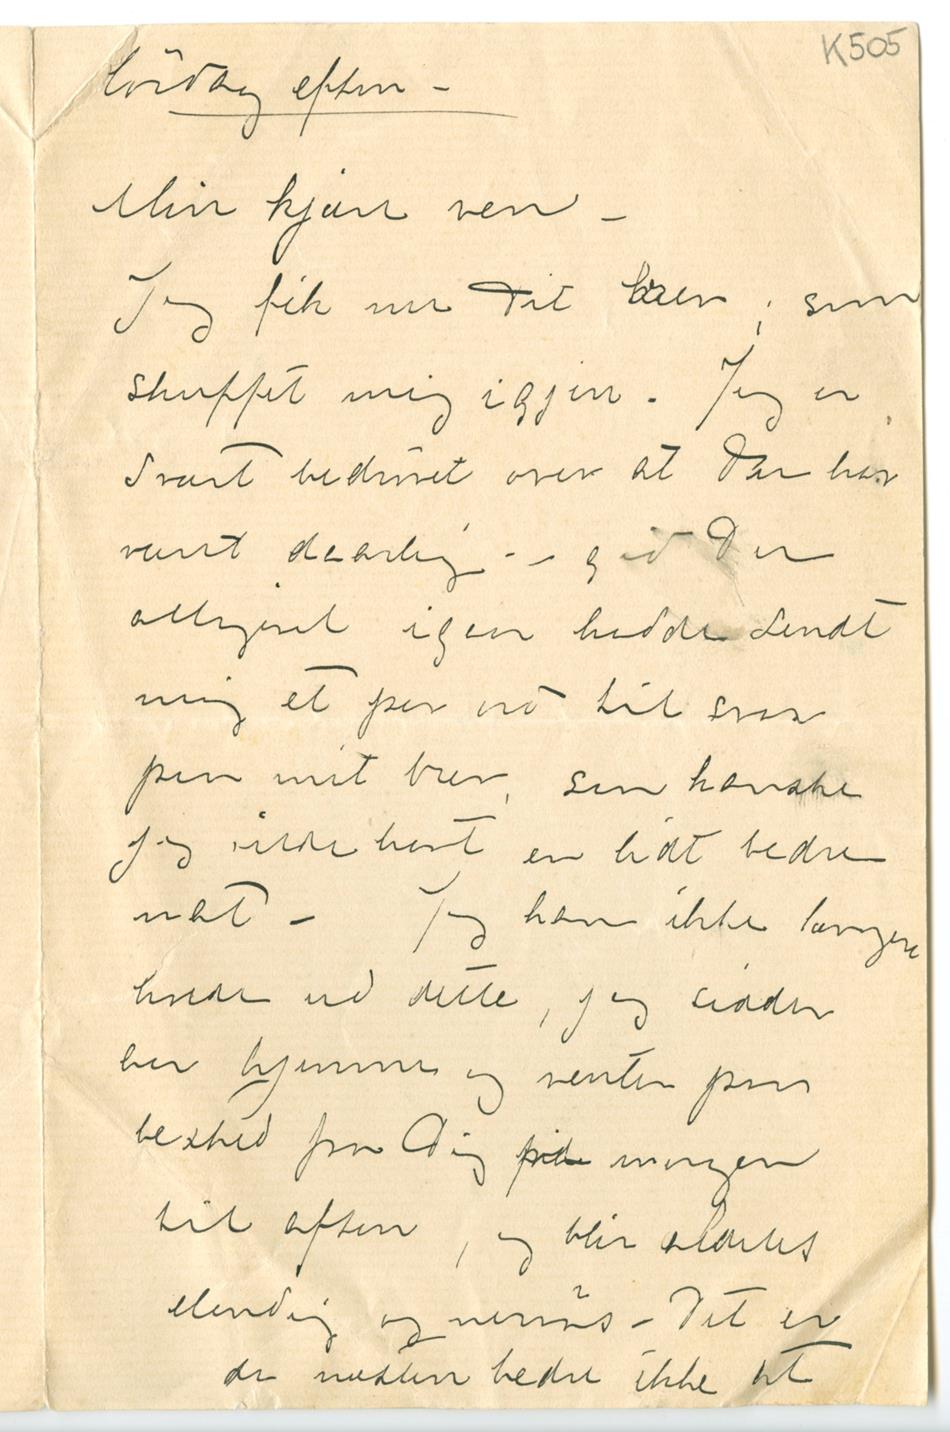 K505
Lördag aften –
Min kjære ven –
Jeg fik nu Dit brev, som
skuffet mig igjen. Jeg er
svært bedrövet over at Du har
vært daarlig – – gid Du
alligevel igen hadde sendt
mig et par ord til svar
paa mit brev, saa kanske
jeg vilde havt en lidt bedre
nat – Jeg kan ikke længere
holde ud dette, jeg sidder
her hjemme og venter paa
besked fra Dig fra morgen
til aften, og blir aldeles
elendig og nervös – Det er
da næsten bedre ikke at